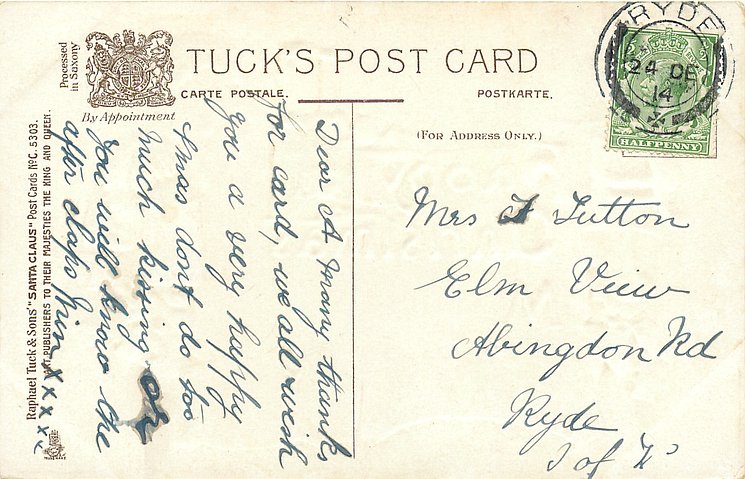 Processed
in Saxony
By Appointment
TUCK'S POST CARD
CARTE POSTALE.
POSTKARTE.
(FOR ADDRESS ONLY.)
RYDE
24 DE
14
HALFPENNY
Raphael Tuck & Sons' "SANTA CLAUS" Post Cards No C. 5303.
ART PUBLISHERS TO THEIR MAJESTIES THE KING AND QUEEN.
Dear A Many thanks
for card, we all wish
you a very happy
Xmas dont do too
much kissing or
you will know the
after claps
x x x x x
Mrs A Tutton
Elm View
Abingdon Rd
Ryde
I of W